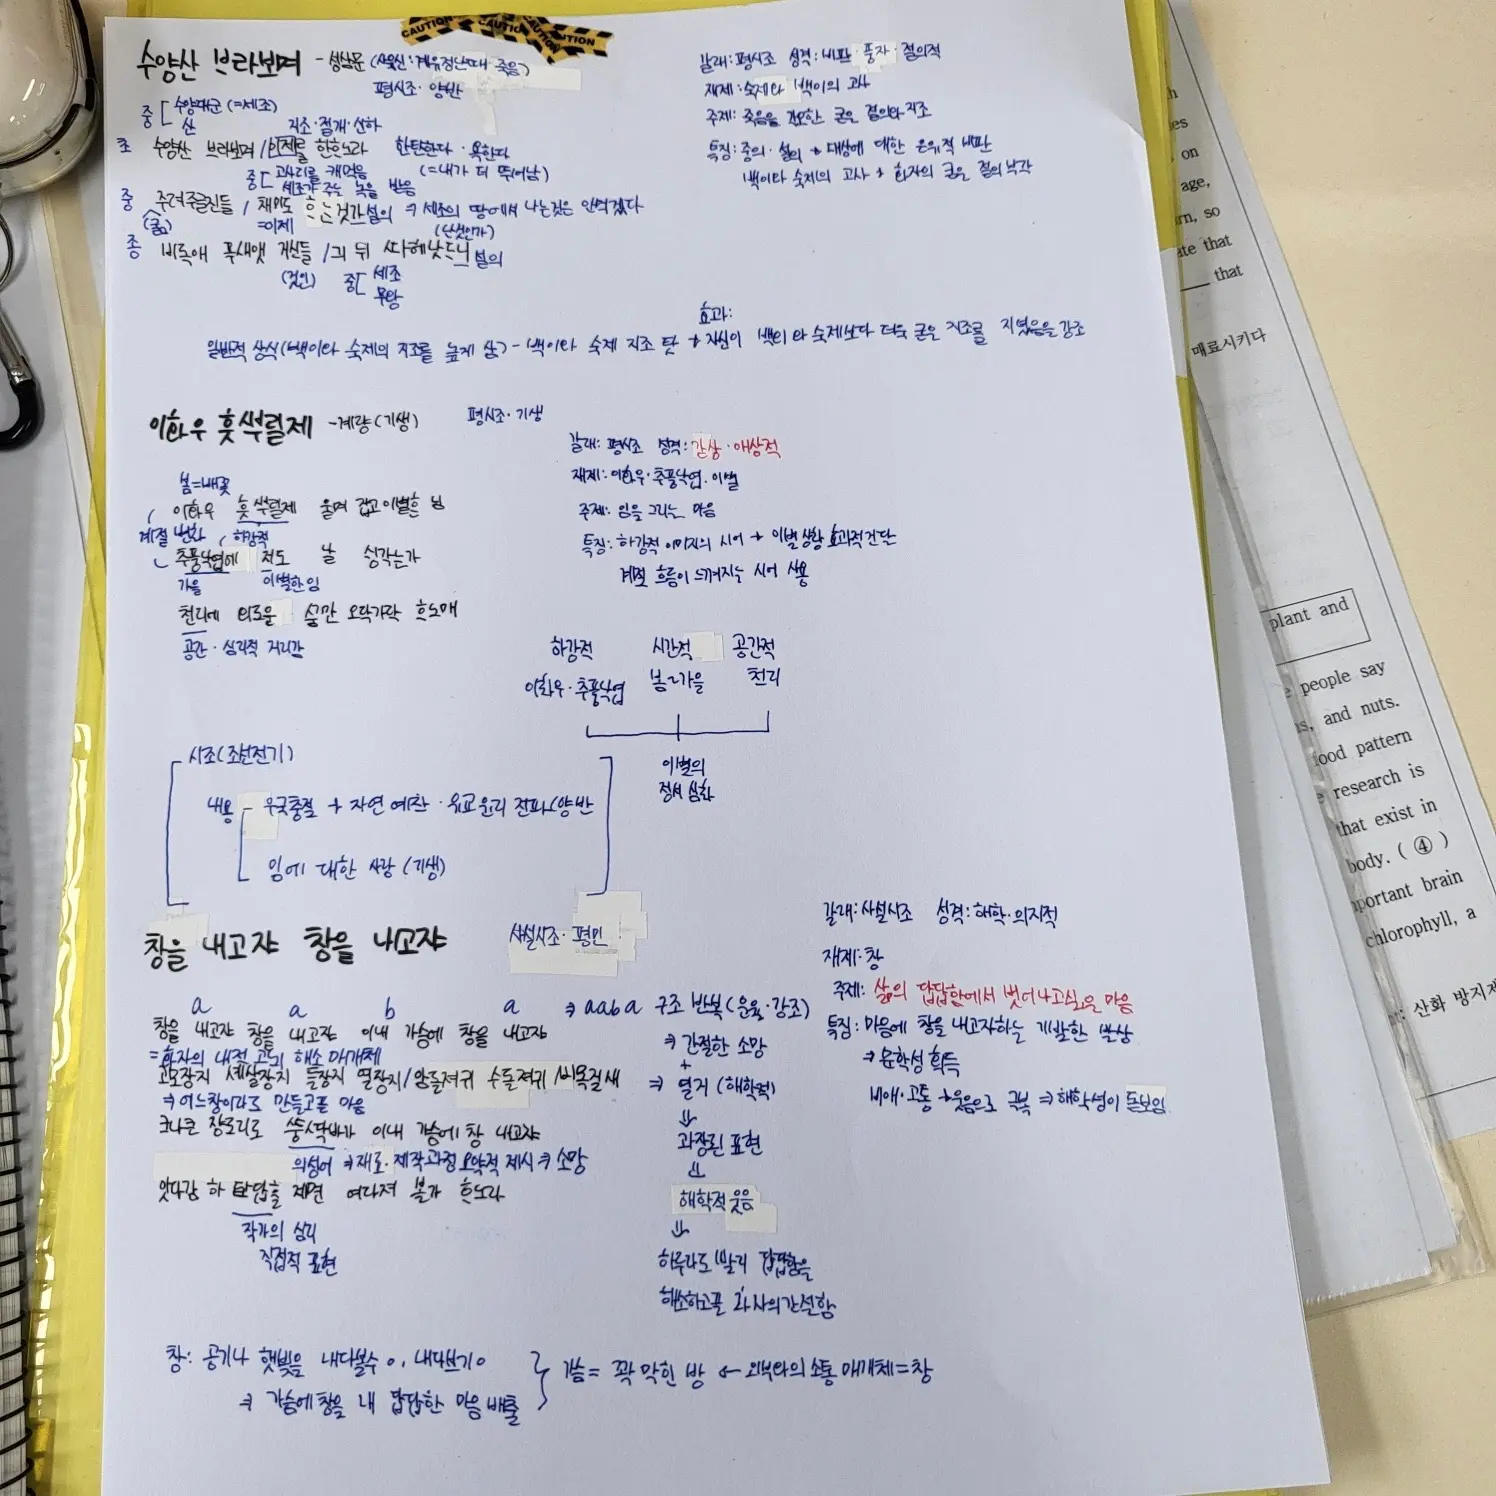 CAUTION CAUTION CAUTION CAUTION
수양산 브라보며 - 성삼문 (사육신: 계유정난때 죽음)
평시조·양반
갈래: 평시조 성격: 비판·풍자·절의적
재제: 숙제와 백이의 고사
주제: 죽음을 각오한 굳은 절의와 지조
특징: 중의·설의 → 대상에 대한 은유적 비판
백이와 숙제의 고사 → 화자의 굳은 절의 부각
중 [ 수양대군 (=세조)
산
지조·절개·산하
초 수양산 브라보며 / 이제를 한하노라 한탄한다·욕한다
중 [ 고사리를 캐먹음 (=내가 더 뛰어남)
세조가 주는 녹을 받음
중 주려주글진들 / 채미도 하는것가 설의 ⇒ 세조의 땅에서 나는것은 안먹겠다
(굶) =이제 (난것인가)
종 비록애 푸새앳 거신들 / 긔 뉘 따헤낫드니 설의
(것인) 중 [ 세조
무왕
효과:
일반적 상식(백이와 숙제의 지조를 높게 삼) - 백이와 숙제 지조 탓 → 자신이 백이와 숙제보다 더욱 굳은 지조를 지녔음을 강조
이화우 흣뿌릴제 - 계랑(기생) 평시조·기생
갈래: 평시조 성격: 감상·애상적
재제: 이화우·추풍낙엽·이별
주제: 임을 그리는 마음
특징: 하강적 이미지의 시어 → 이별상황 효과적간단
계절 흐름이 느껴지는 시어 사용
봄=배꽃
이화우 흣뿌릴제 울며 잡고 이별한 님
계절 변화 하강적
추풍낙엽에 저도 날 생각는가
가을 이별한임
천리에 외로운 숨만 오락가락 하노매
공간·심리적 거리감
하강적 시간적 공간적
이화우·추풍낙엽 봄~가을 천리
이별의
정서 심화
시조(조선전기)
내용 - 우국충절 → 자연 예찬·유교 윤리 전파(양반
임에 대한 사랑 (기생)
창을 내고쟈 창을 내고쟈 사설시조·평민
갈래: 사설시조 성격: 해학·의지적
재제: 창
주제: 삶의 답답함에서 벗어나고싶은 마음
특징: 마음에 창을 내고자하는 기발한 발상
⇒ 문학성 획득
비애·고통 → 웃음으로 극복 ⇒ 해학성이 돋보임
a a b a ⇒ aaba 구조 반복(운율·강조)
창을 내고쟈 창을 내고쟈 이내 가슴에 창을 내고쟈
=화자의 내적 고뇌 해소 매개체
고모장지 세살장지 들장지 열장지 / 암돌져귀 수돌져귀 / 비목걸새
⇒ 어느창이라도 만들고픈 마음
크나큰 쟝도리로 뚱딱바가 이내 가슴에 창 내고쟈
의성어 ⇒ 재료·제작과정 요약적 제시 ⇒ 소망
잇다감 하 답답할 제면 여다져 볼가 하노라
작가의 심리
직접적 표현
⇒ 간절한 소망
+
⇒ 열거 (해학적)
⇓
과장된 표현
⇓
해학적 웃음
⇓
하루라도 빨리 답답함을
해소하고픈 화자의 간절함
창: 공기나 햇빛을 내다볼수 o, 내다보기 o
⇒ 가슴에 창을 내 답답한 마음 배출
가슴 = 꽉 막힌 방 ← 외부와의 소통 매개체 = 창
on
age,
rn, so
ate that
that
매료시키다
plant and
people say
and nuts.
food pattern
research is
that exist in
body. ( ④ )
portant brain
chlorophyll, a
: 산화 방지제